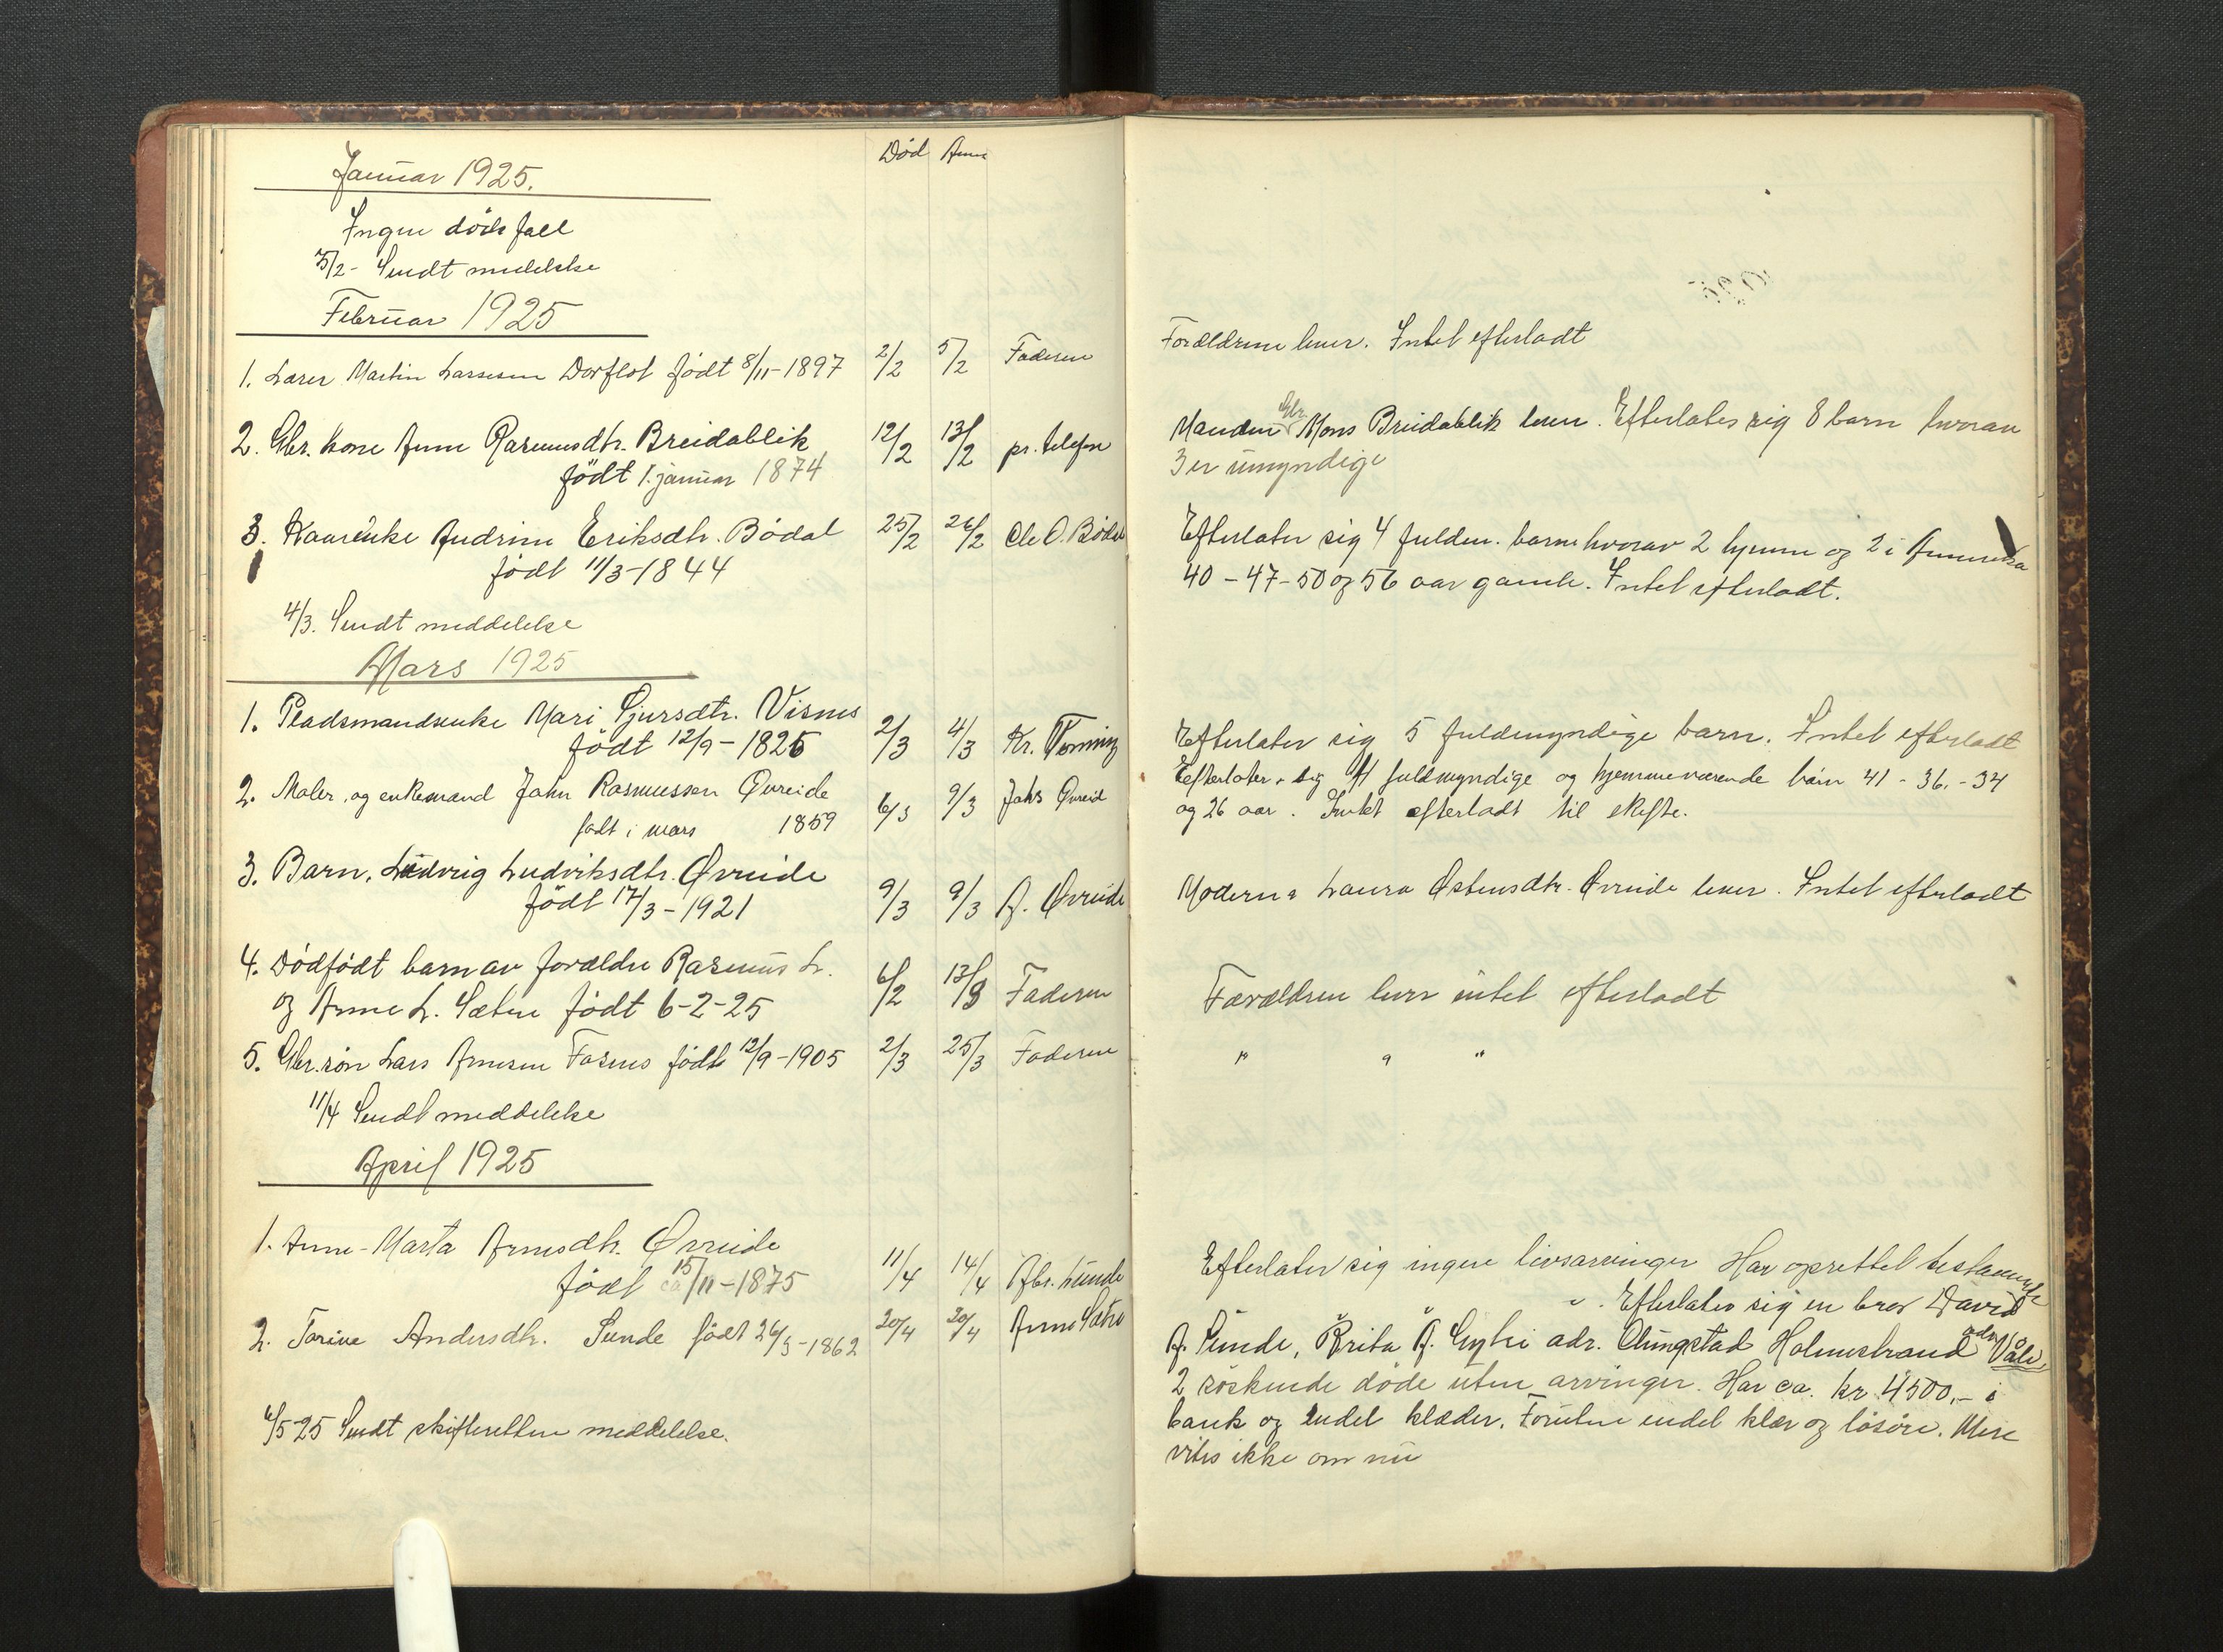 Død Anm
Januar 1925.
Ingen dødsfall
5/2- Sendt meddelelse
Februar 1925
1. Lærer Martin Larssen Dorflot født 8/11-1897 2/2 5/2 Faderen
Forældrene lever. Intet efterladt
2. Gbr. Kone Anne Rasmusdtr. Breidablik 12/2 13/2 pr. telefon
født 1. januar 1874
Manden Gbr. Mons Breidablik lever. Efterlates sig 8 barn hvorav
3 er umyndige
3. Kaarenke Andrine Eriksdtr. Bødal 25/2 26/2 Ole O. Bødal
født 11/3-1844
Efterlater sig 4 fuldm. barn hvorav 2 hjemme og 2 i Amerika
40-47-50 og 56 aar gamle. Intet efterladt.
4/3. Sendt meddelelse
Mars 1925
1. Pladsmandsenke Mari Gjursdtr. Visnes 2/3 4/3 Kr. Tenning
født 12/9-1826
Efterlater sig 5 fuldmyndige barn. Intet efterladt
2. Maler, og enkemand John Rasmussen Øvreide 6/3 9/3 Johs Øvreid
født i mars 1859
Efterlater sig 4 fuldmyndige og hjemmeværende barn 41-36.-34
og 26 aar. Intet efterladt til skifte.
3. Barn, Ludvig Ludviksdtr. Øvreide 9/3 9/3 A. Øvreide
født 17/3-1921
Moderen Laura Østensdtr. Øvreide lever. Intet efterladt
4. Dødfødt barn av forældre Rasmus L. 6/2 13/3 Faderen
og Anne L. Sæten født 6-2-25
Forældren lever intet efterladt
5. Gbr. søn Lars Arnesen Fosnes født 12/9-1905 2/3 25/3 Faderen
" " "
11/4 Sendt meddelelse
April 1925
1. Anne-Marta Arnesdtr. Øvreide 11/4 14/4 Abr. Lunde
født ca 15/11-1875
Efterlater sig ingen livsarvinger Har oprettet testamente
2. Torine Andersdtr. Sunde født 26/3-1862 20/4 20/4 Anne Sætre
Efterlater sig en bror David
A. Sunde, Brita A. adr. Holmestrand adr. Våle.
2 søskende døde uten arvinger. Har ca. kr 4500,- i
bank og endel klæder. Foruten endel klær og løsøre. Mere
vites ikke om nu
6/5-25 Sendt skifteretten meddelelse.